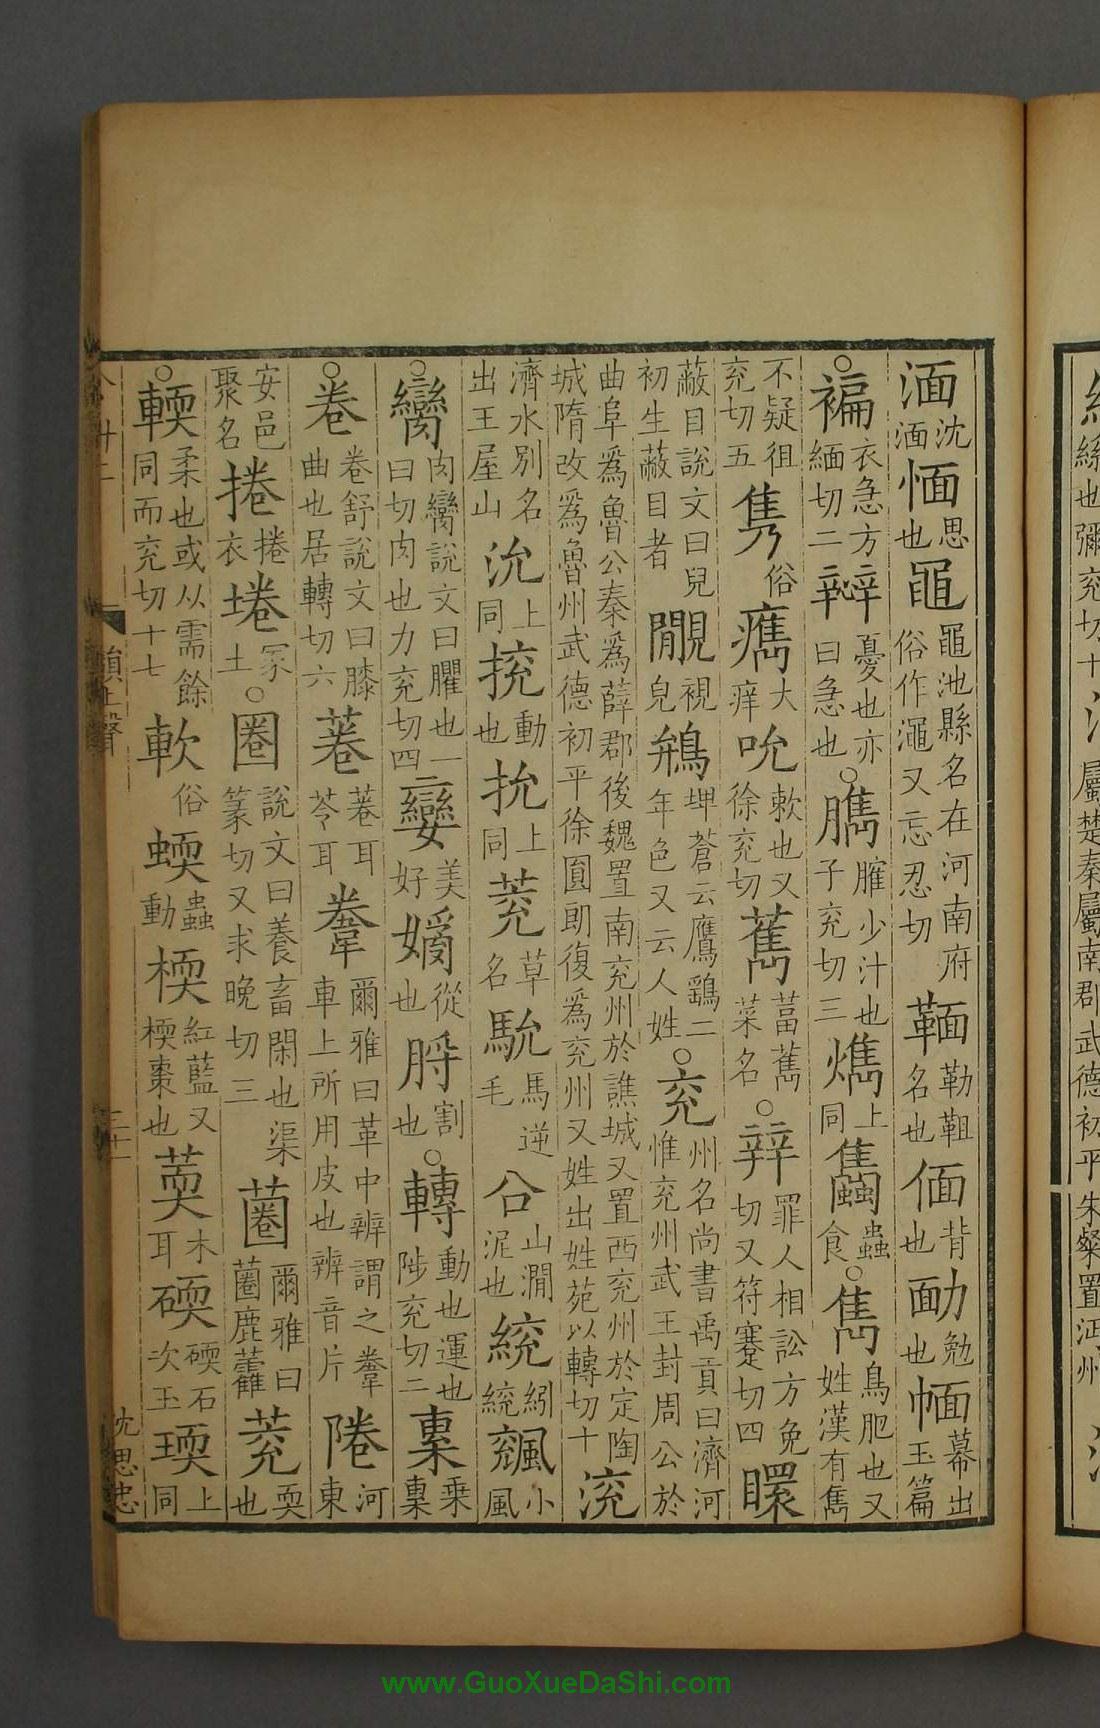 湎沈湎愐思也黽黽池縣名在河南府俗作澠又忘忍切䩏勒靼名也偭背也勔勉也㡈幕出玉篇
○褊衣急方緬切二辡憂也亦曰急也○臇臛少汁也子兖切三㷷上同蟲食○雋鳥肥也又姓漢有雋
不疑徂兖切五隽俗㢧大痒吮欶也又徐兖切䓺菜名○辡罪人相訟方免切又符蹇切四睘
蔽目說文曰兒初生蔽目者覵視皃鵧埤蒼云鷹鷂二年色又云人姓○兖州名尚書禹貢曰濟河惟兖州武王封周公於
曲阜爲魯公秦爲薛郡後魏置南兖州於譙城又置西兖州於定陶城隋改爲魯州武德初平徐圓朗復爲兖州又姓出姓苑以轉切十沇
濟水別名出王屋山沇上同㧪動也抁上同䒛草名馻馬逆毛㕣山澗泥也𥿊𥿊紖䫺小風
○臠肉臠說文曰臞也一曰切肉也力兖切四孌美好嫡從也𦝼割也○轉動也運也陟兖切二㯻乗㯻
○卷卷舒說文曰膝曲也居轉切六菤菤耳苓耳䩜爾雅曰革中辨謂之䩜車上所用皮也辨音片䧘河東
安邑聚名捲捲衣埢冢土○圈說文曰養畜閑也渠篆切又求晚切三䓯爾雅曰䓯鹿藿䒛耎也
○輭柔也或从需餘同而兖切十七軟俗蝡蟲動㮕紅藍又㮕棗也𦸣木耳碝碝石次玉瑌上同
沈思忠
www.GuoXueDaShi.com